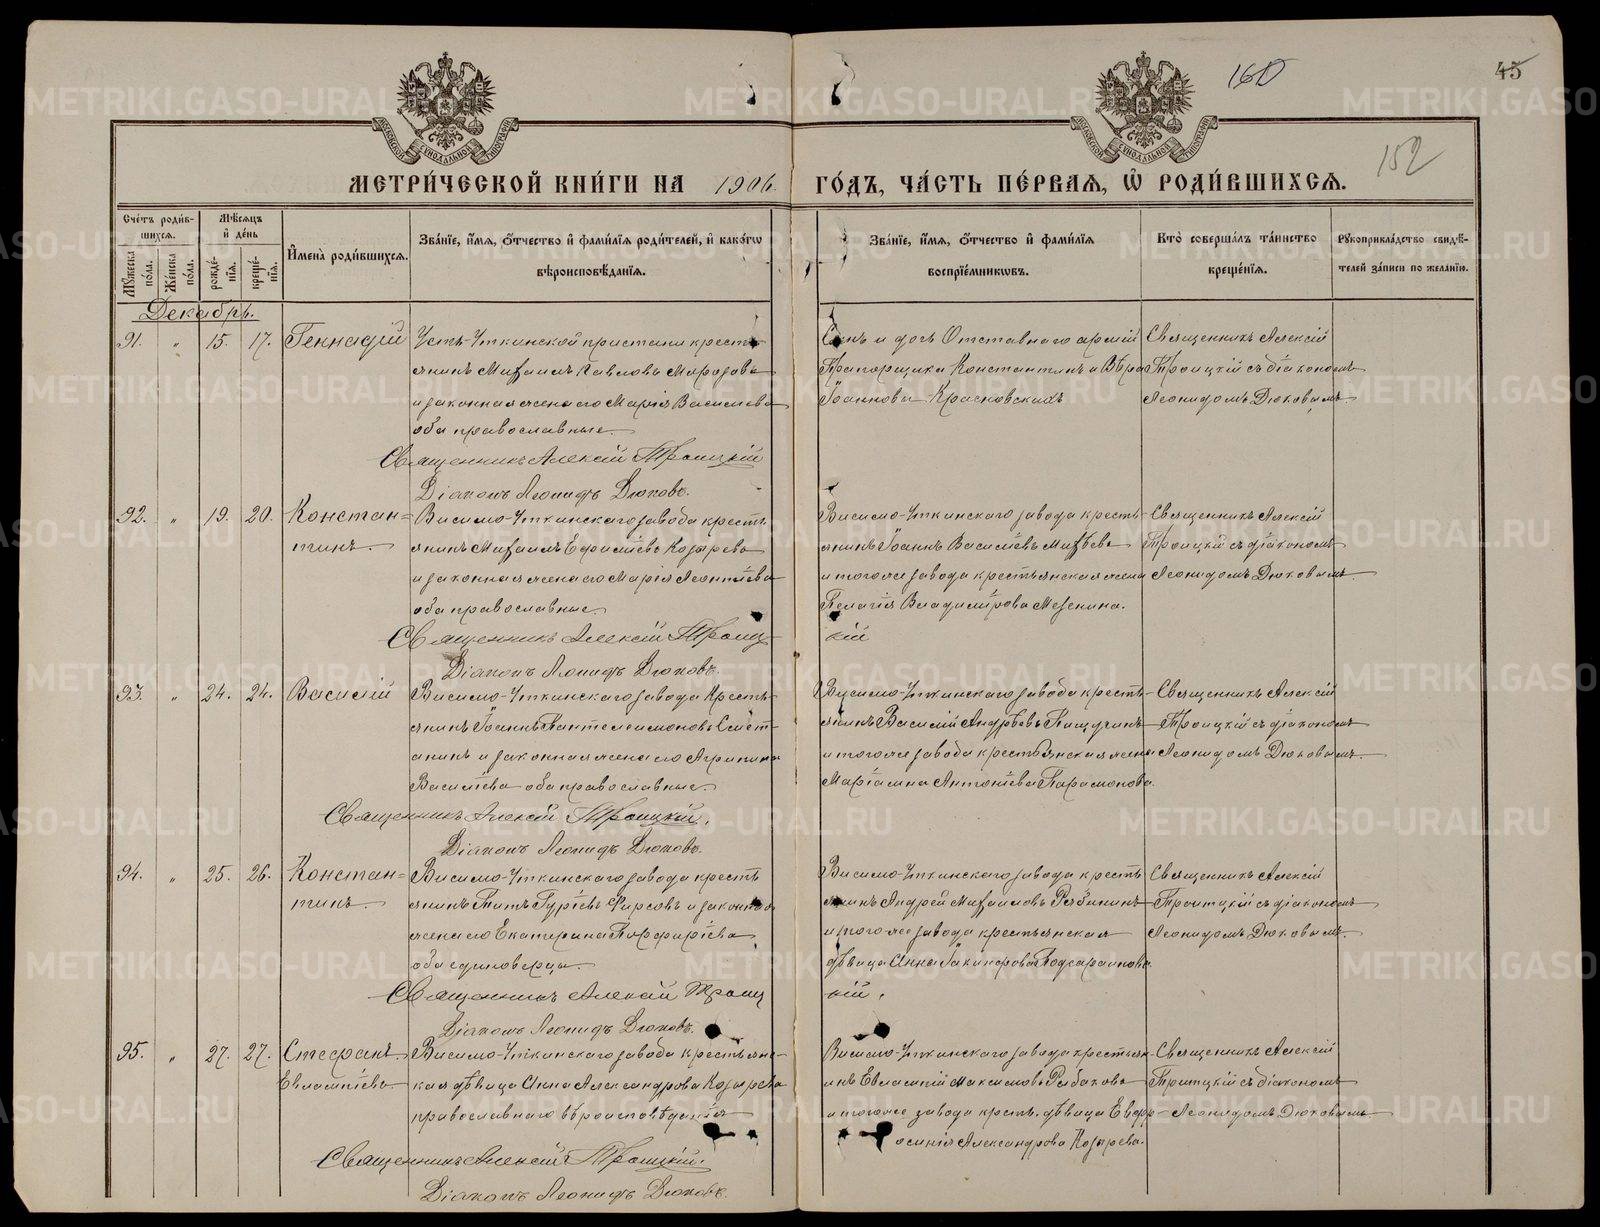 160
45
152
МОСКОВСКОЙ СѴНОДАЛЬНОЙ ТИПОГРАФІИ
МОСКОВСКОЙ СѴНОДАЛЬНОЙ ТИПОГРАФІИ
МЕТРИ́ЧЕСКОЙ КНИ́ГИ НА 1906. ГО́ДЪ, ЧА́СТЬ ПЕ́РВАѦ, Ѡ҆ РОДИ́ВШИХСѦ.
Сче́тъ роди́в-
шихсѧ.
Мꙋ́жеска по́ла.
Же́нска по́ла.
Мѣ́сѧцъ
и҆ де́нь
рожде́-нїѧ.
креще́-нїѧ.
И҆мена̀ роди́вшихсѧ.
Зва́нїе, и҆́мѧ, ѻ҆́тчество и҆ фами́лїѧ роди́телей, и҆ како́гѡ
вѣроисповѣ́данїѧ.
Зва́нїе, и҆́мѧ, ѻ҆́тчество и҆ фами́лїѧ
воспрїе́мникѡвъ.
Кто̀ соверша́лъ та́инство
креще́нїѧ.
Рꙋкоприкла́дство свидѣ́-
телей за́писи по жела́нїю.
Декабрь.
91. " 15. 17. Геннадій
Усть-Уткинской пристани кресть-
янинъ Михаилъ Павловъ Морозовъ
и законная жена его Марія Васильева
оба православные.
Священникъ Алексій Троицкій
Діаконъ Леонидъ Дюковъ.
Сынъ и дочь Отставного арміи
Прапорщика Константинъ и Вѣра
Іоанновы Красновскихъ
Священникъ Алексій
Троицкій съ діакономъ
Леонидомъ Дюковымъ.
92. " 19. 20. Констан=
тинъ.
Висимо-Уткинскаго завода кресть-
янинъ Михаилъ Ефимѣевъ Козыревъ
и законная жена его Марія Леонтіева
оба православные.
Священникъ Алексій Троиц-
кій
Діаконъ Леонидъ Дюковъ.
Висимо-Уткинскаго завода кресть-
янинъ Іоаннъ Васильевъ Михѣевъ
и того же завода крестьянская жена
Пелагія Владимірова Мезенина.
Священникъ Алексій
Троицкій съ діакономъ
Леонидомъ Дюковымъ.
93. " 24. 24. Василій
Висимо-Уткинскаго завода Кресть-
янинъ Іоаннъ Пантелеимоновъ Смѣт-
анинъ и законная жена его Агрипина
Васильева оба православные.
Священникъ Алексій Троицкій.
Діаконъ Леонидъ Дюковъ.
Висимо-Уткинскаго завода кресть-
янинъ Василій Андреевъ Пищугинъ
и того же завода крестьянская жена
Маріамна Антоніева Парамонова.
Священникъ Алексій
Троицкій съ діакономъ
Леонидомъ Дюковымъ.
94. " 25. 26. Констан=
тинъ.
Висимо-Уткинскаго завода кресть
янинъ Титъ Гурьевъ Фирсовъ и законная
жена его Екатерина Порфирьева
оба единоверцы.
Священникъ Алексій Троиц
кій.
Діаконъ Леонидъ Дюковъ.
Висимо-Уткинскаго завода кресть
янинъ Андрей Михаиловъ Рябининъ
и того же завода крестьянская
дѣвица Анна Іакинфова
Священникъ Алексій
Троитцкій съ діакономъ
Леонидомъ Дюковымъ.
95. " 27. 27. Стефанъ
Евлампіевъ.
Висимо-Уткинскаго завода крестьянс-
кая дѣвица Анна Александрова Козырева
православнаго вѣроисповѣданія
Священникъ Алексій Троицкій.
Діаконъ Леонидъ Дюковъ.
Висимо-Уткинскаго завода крестьян-
инъ Евлампій Максимовъ Рябковъ
и того же завода крест. дѣвица Евфр-
осинія Александрова Козырева.
Священникъ Алексій
Троицкій съ діакономъ
Леонидомъ Дюковымъ
METRIKI.GASO-URAL.RU